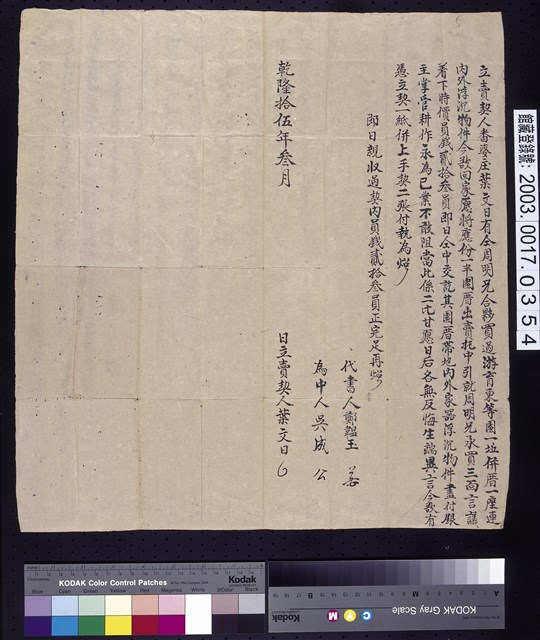 立賣契人番婆庄葉文日有仝周明兄合夥買過游育東等園一坵併厝一座連
內外浮沉物件今欲回家應將應份一半園厝出賣托中引就周明兄承買三面言議
着下時價員錢貳拾叁員即日仝中交訖其園厝帶坵內外家器浮沉物件盡付銀
主掌管耕作永為己業不敢阻當此係二比甘愿日后各無反悔生端異言今欲有
憑立契一紙併上手契二張付執為炤
即日親收過契內員錢貳拾叁員正完足再炤
代書人鄭韞玉
為中人吳成公
乾隆拾伍年叁月 日立賣契人葉文日
館藏登錄號: 2003.0017.0354
KODAK Color Control Patches
Kodak
Blue Cyan Green Yellow Red Magenta White 3/Color Black
KODAK Gray Scale
C Y M
Kodak
A 1 2 3 4 5 6 M 8 9 10 11 12 13 14 15 B 17 18 19